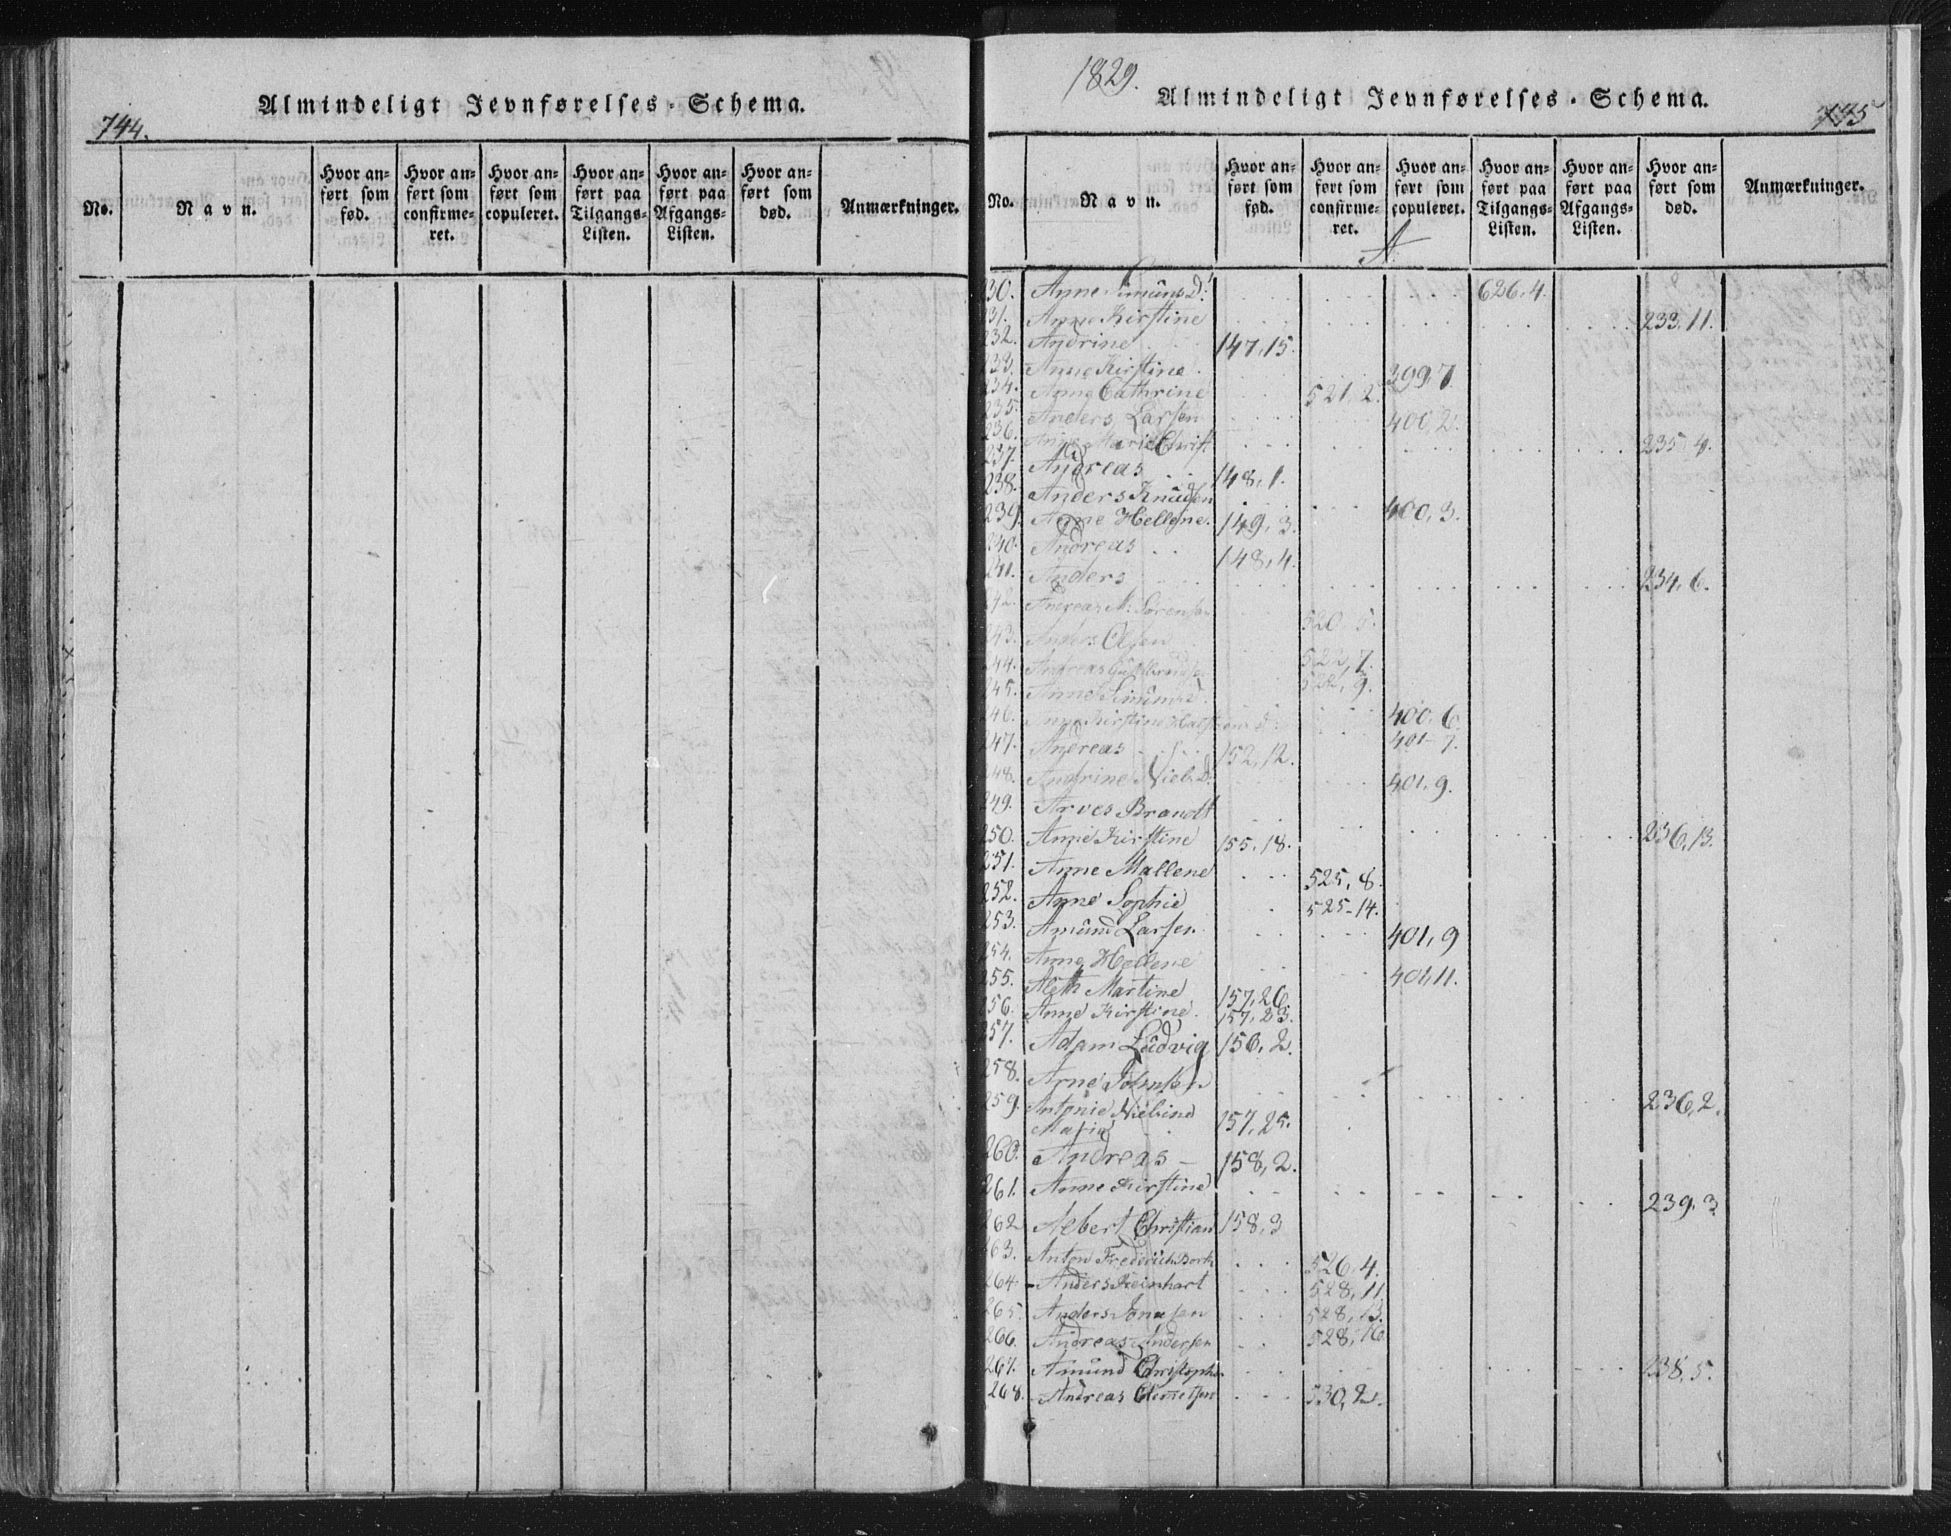 Almindeligt Jevnførelses-Schema.
744.
No.
Navn.
Hvor anført som fød.
Hvor anført som confirmeret.
Hvor anført som copuleret.
Hvor anført paa Tilgangs-Listen.
Hvor anført paa Afgangs-Listen.
Hvor anført som død.
Anmærkninger.
1829.
Almindeligt Jevnførelses-Schema.
745
No.
Navn.
Hvor anført som fød.
Hvor anført som confirmeret.
Hvor anført som copuleret.
Hvor anført paa Tilgangs-Listen.
Hvor anført paa Afgangs-Listen.
Hvor anført som død.
Anmærkninger.
A.
230. Anne Simuns D: 626,4.
231. Anne Kirstine 233,11.
232. Andrine 147,15.
233. Anne Kirstine 399,7
234. Anne Cathrine 521,2.
235. Anders Larsen 400,2.
236. Anne Marie Christ 235,4.
237. Andreas 148,1.
238. Anders Knudsen 400,3.
239. Anne Hellene. 149,3.
240. Andreas 148,4.
241. Anders 234,6.
242. Andreas M: Sørensen 520,5.
243. Anders Olsen 522,7.
244. Andreas 522,9.
245. Anne 400,6
246. Anne Kirstine 401-7.
247. Andreas 152,12.
248. Andrine Nielsd. 401,9.
249. Arves Brandt 236,13.
250. Anne Kirstine 155,18.
251. Anne Mallene 525,8.
252. Anne Sophie 525-14.
253. Amund Larsen 401,9
254. Anne Hellene 401,11.
255. Aleth Martine 157,26.
256. Anne Kirstine. 157,23.
257. Adam Ludvig 156,2.
258. Arne Johnsen 236,2.
259. Antonie Nielsine Maria 157,25.
260. Andreas 158,2.
261. Anne Kirstine 239,3.
262 Albert Christian 158,3
263. Anton Frederich Bork 526,4.
264 Anders Reinhart 528,11
265. Anders Jonasen 528,13.
266. Andreas Andersen 528,16
267. Amund Christoph. 238,5.
268. Andreas Clemetsen 530,2.